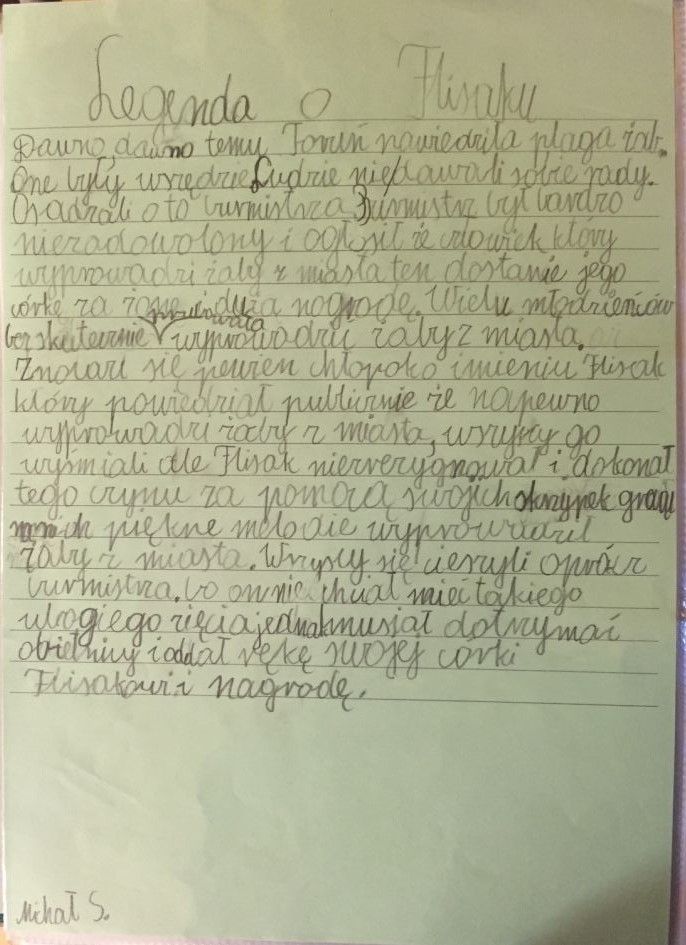 Legenda o Flisaku
Dawno, dawno temu Toruń nawiedziła plaga żab.
One były wszędzie Ludzie nie dawali sobie rady.
o to burmistrza Burmistrz był bardzo
niezadowolony i ogłosił że człowiek który
wyprowadzi żaby z miasta ten dostanie jego
córkę za żonę i dużą nagrodę. Wielu młodzieńców
bezskutecznie próbowała wyprowadzić żaby z miasta.
Znalazł się pewien chłopak o imieniu Flisak
który powiedział publicznie że napewno
wyprowadzi żaby z miasta, wszyscy go
wyśmiali ale Flisak niezrezygnował i dokonał
tego czynu za pomocą swojich skrzypek grając
na nich piękne melodie wyprowadził
żaby z miasta. Wszyscy się cieszyli oprócz
burmistrza, bo on nie chciał mieć takiego
ubogiego zięcia jednak musiał dotrzymać
obietnicy i oddał rękę swojej córki
Flisakowi i nagrodę.
Michał S.